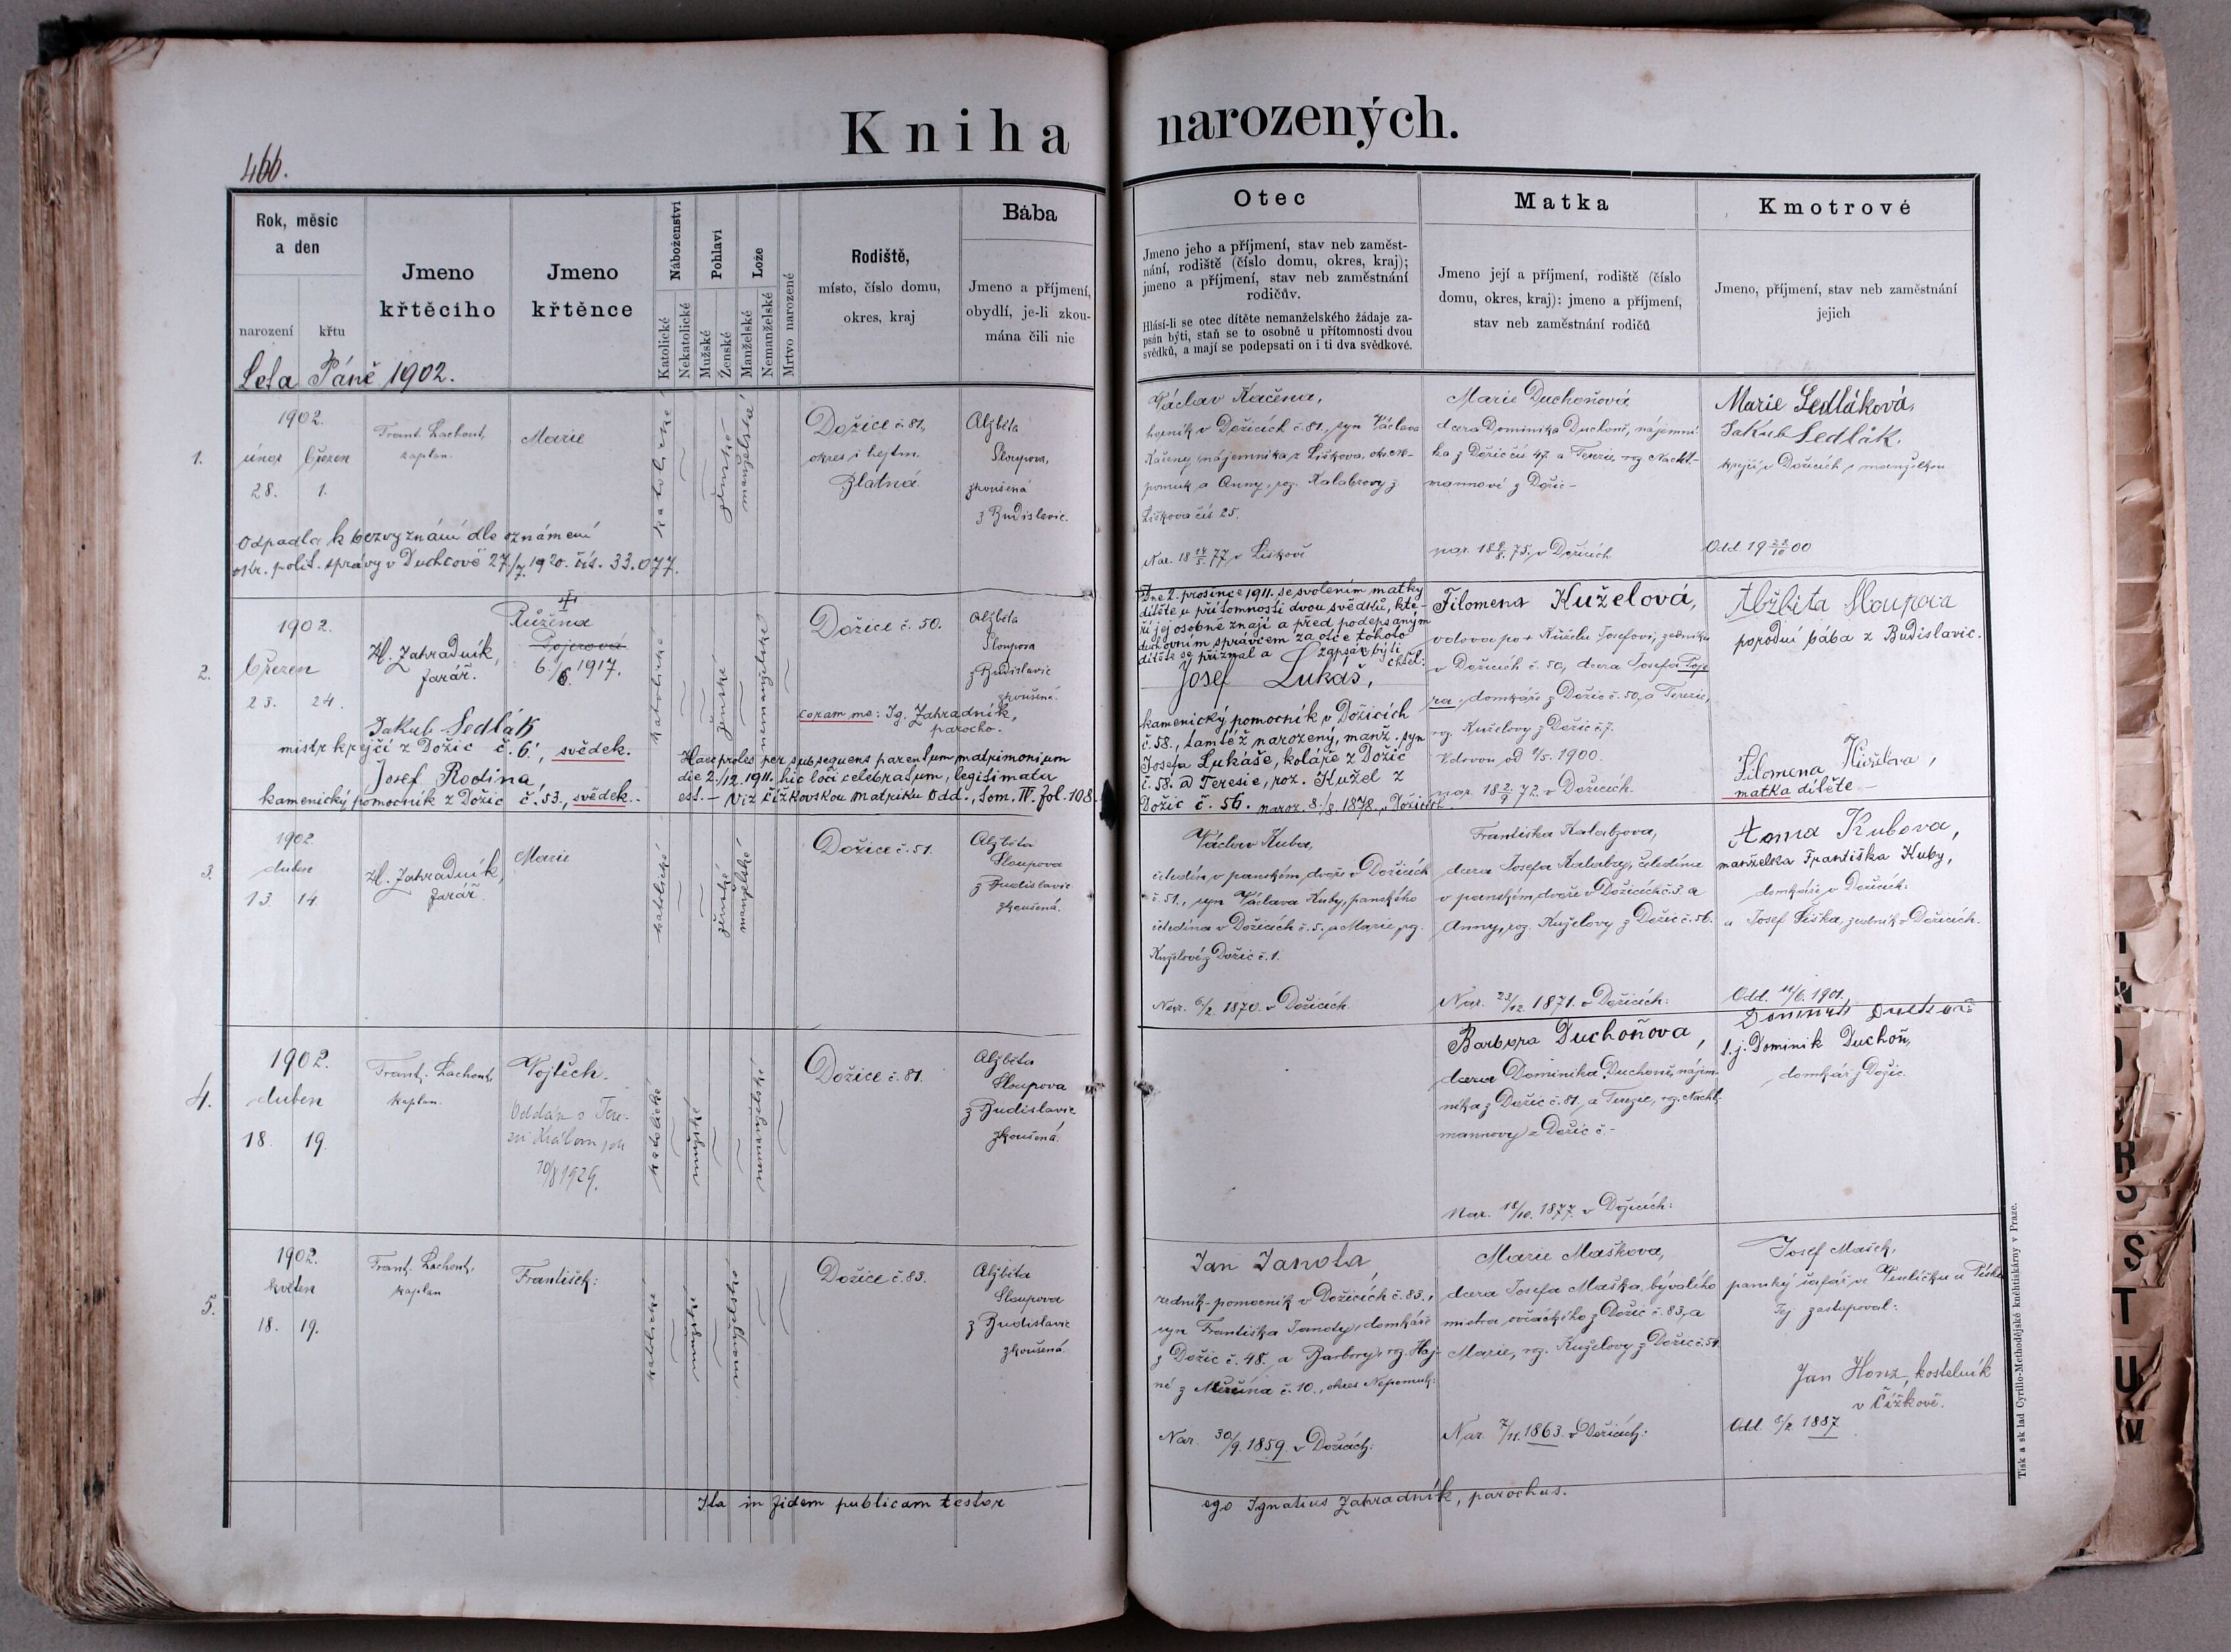 Kniha narozených.
466.
Rok, měsíc
a den
narození
křtu
Jmeno
křtěcího
Jmeno
křtěnce
Náboženství
Katolické
Nekatolické
Pohlaví
Mužské
Ženské
Lože
Manželské
Nemanželské
Mrtvo narozené
Rodiště,
místo, číslo domu,
okres, kraj
Bába
Jmeno a příjmení,
obydlí, je-li zkou-
mána čili nic
Otec
Jmeno jeho a příjmení, stav neb zaměst-
nání, rodiště (číslo domu, okres, kraj);
jmeno a příjmení, stav neb zaměstnání
rodičův.
Hlásí-li se otec dítěte nemanželského žádaje za-
psán býti, staň se to osobně u přítomnosti dvou
svědků, a mají se podepsati on i ti dva svědkové.
Matka
Jmeno její a příjmení, rodiště (číslo
domu, okres, kraj): jmeno a příjmení,
stav neb zaměstnání rodičů
Kmotrové
Jmeno, příjmení, stav neb zaměstnání
jejich
Leta Páně 1902.
1.
1902.
únor březen
28. 1.
Frant. Lachout,
kaplan.
Marie
katolické
ženské
manželské
Dožice č. 81,
okres i hejtm.
Blatná.
Alžběta
Sloupova,
zkoušená
z Budislavic.
Odpadla k bezvyznání dle oznámení
okr. polit. správy v Duchcově 27./7. 1920. čís. 33.077.
Václav Kačena,
v Dožicích č. 81., syn Václava
Kačeny, nájemníka z Liškova, okres Ne-
pomuk a Anny, roz. Kalabzovy z
Liškova čís. 25.
Nar. 18 14/5. 77 v Liškově
Marie Duchoňová
dcera Dominika Duchoně, nájemní-
ka z Dožic čís 47. a Terezie, roz. Nachtl-
mannové z Dožic -
nar. 18 9/8. 75. v Dožicích
Marie Sedláková,
Jakub Sedlák.
krejčí v Dožicích s manželkou
Odd. 19 23/10 00
2.
1902.
březen
23. 24.
H. Zahradník,
farář.
+
Růžena
Pojerová
6./6. 1917.
katolické
ženské
nemanželské
Dožice č. 50.
Alžběta
Sloupova
z Budislavic
zkoušená.
coram me: Ig. Zahradník,
parocho.
Jakub Sedlák
mistr krejčí z Dožic č. 6., svědek.
Josef Rodina,
kamenický pomocník z Dožic č. 53., svědek.
Haec proles per subsequens parentum matrimonium
die 2./12. 1911. hic loci celebratum, legitimata
est. - Viz čížkovskou matriku Odd., tom. IV. fol. 108.
Dne 2. prosince 1911. se svolením matky
dítěte u přítomnosti dvou svědků, kte-
ří jej osobně znají a před podepsaným
duchovním správcem za otce tohoto
dítěte se přiznal a zapsán býti
chtěl:
Josef Lukáš,
kamenický pomocník v Dožicích
č. 58., tamtéž narozený, manž. syn
Josefa Lukáše, koláře z Dožic
č. 58. a Teresie, roz. Kužel z
Dožic č. 56. naroz. 8./8. 1878. v Dožicích
Filomena Kuželová,
vdova po + Kuželu Josefovi, zedníku
v Dožicích č. 50, dcera Josefa Poje-
ra, domkáře z Dožic č. 50, a Terezie,
roz. Kuželovy z Dožic č. 7.
Vdovou od 1900.
nar. 18 2./9 72. v Dožicích.
Alžběta Sloupova
porodní bába z Budislavic.
Filomena Kuželova,
matka dítěte
3.
1902
duben
13. 14.
H. Zahradník,
farář.
Marie
katolické
ženské
manželské
Dožice č. 51.
Alžběta
Sloupova
z Budislavic
zkoušená.
Václav Kuba,
čeledín v panském dvoře v Dožicích
č. 51., syn Václava Kuby, panského
čeledína v Dožicích č. 5. a Marie, roz.
Kuželové z Dožic č. 1.
Nar. 6/2. 1870. v Dožicích.
Františka Kalabzova,
dcera Josefa Kalabzy, čeledína
v panském dvoře v Dožicích č. 3. a
Anny, roz. Kuželovy z Dožic č. 56.
Nar. 23/12. 1871. v Dožicích:
Anna Kubova,
manželka Františka Kuby,
domkáře v Dožicích:
a Josef Šiška, zedník v Dožicích.
Odd. 11/6. 1901.
4.
1902.
duben
18. 19.
Frant. Lachout,
kaplan.
Vojtěch.
Oddán s Tere-
zií Královou
10/8 1929.
katolické
mužské
nemanželské
Dožice č. 81.
Alžběta
Sloupova
z Budislavic
zkoušená.
Barbora Duchoňova,
dcera Dominika Duchoně, nájem-
níka z Dožic č. 81. a Terezie, roz. Nachtl-
mannovy z Dožic č. -
Nar. 18/10. 1877. v Dožicích:
Dominik Duchoň
t. j. Dominik Duchoň,
domkář z Dožic.
5.
1902.
květen
18. 19.
Frant. Lachout,
kaplan
František:
katolické
mužské
manželské
Dožice č. 83.
Alžběta
Sloupova
z Budislavic
zkoušená.
Jan Janota,
zedník-pomocník v Dožicích č. 83.,
syn Františka Janoty, domkáře
z Dožic č. 48. a Barbory, roz. Haj-
né z Měrčína č. 10., okres Nepomuk:
Nar. 30/9. 1859. v Dožicích:
Marie Maškova,
dcera Josefa Maška, bývalého
mistra ovčáckého z Dožic č. 83, a
Marie, roz. Kuželovy z Dožic č. 54.
Nar. 7/11. 1863. v Dožicích:
Josef Mašek,
panský šafář ve
Jej zastupoval:
Jan Honz, kostelník
v Čížkově.
Odd. 8/2. 1887
Ita in fidem publicam testor ego Ignatius Zahradník, parochus.
Tisk a sklad Cyrillo-Methodějské knihtiskárny v Praze.